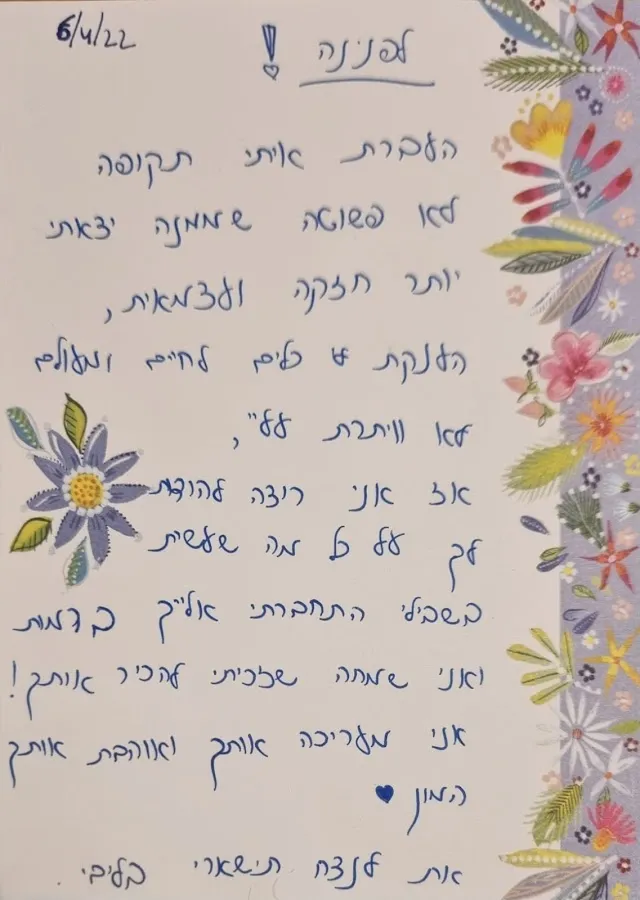 6/4/22
לפנינה!
העברת איתי תקופה
לא פשוטה שממנה יצאתי
יותר חזקה ועצמאית,
הענקת לי כלים לחיים ומעולם
לא וויתרת עליי,
אז אני רוצה להודות
לך על כל מה שעשית
בשבילי התחברתי אלייך בדמות
ואני שמחה שזכיתי להכיר אותך!
אני מעריכה אותך ואוהבת אותך
המון
את לנצח תישארי בליבי.